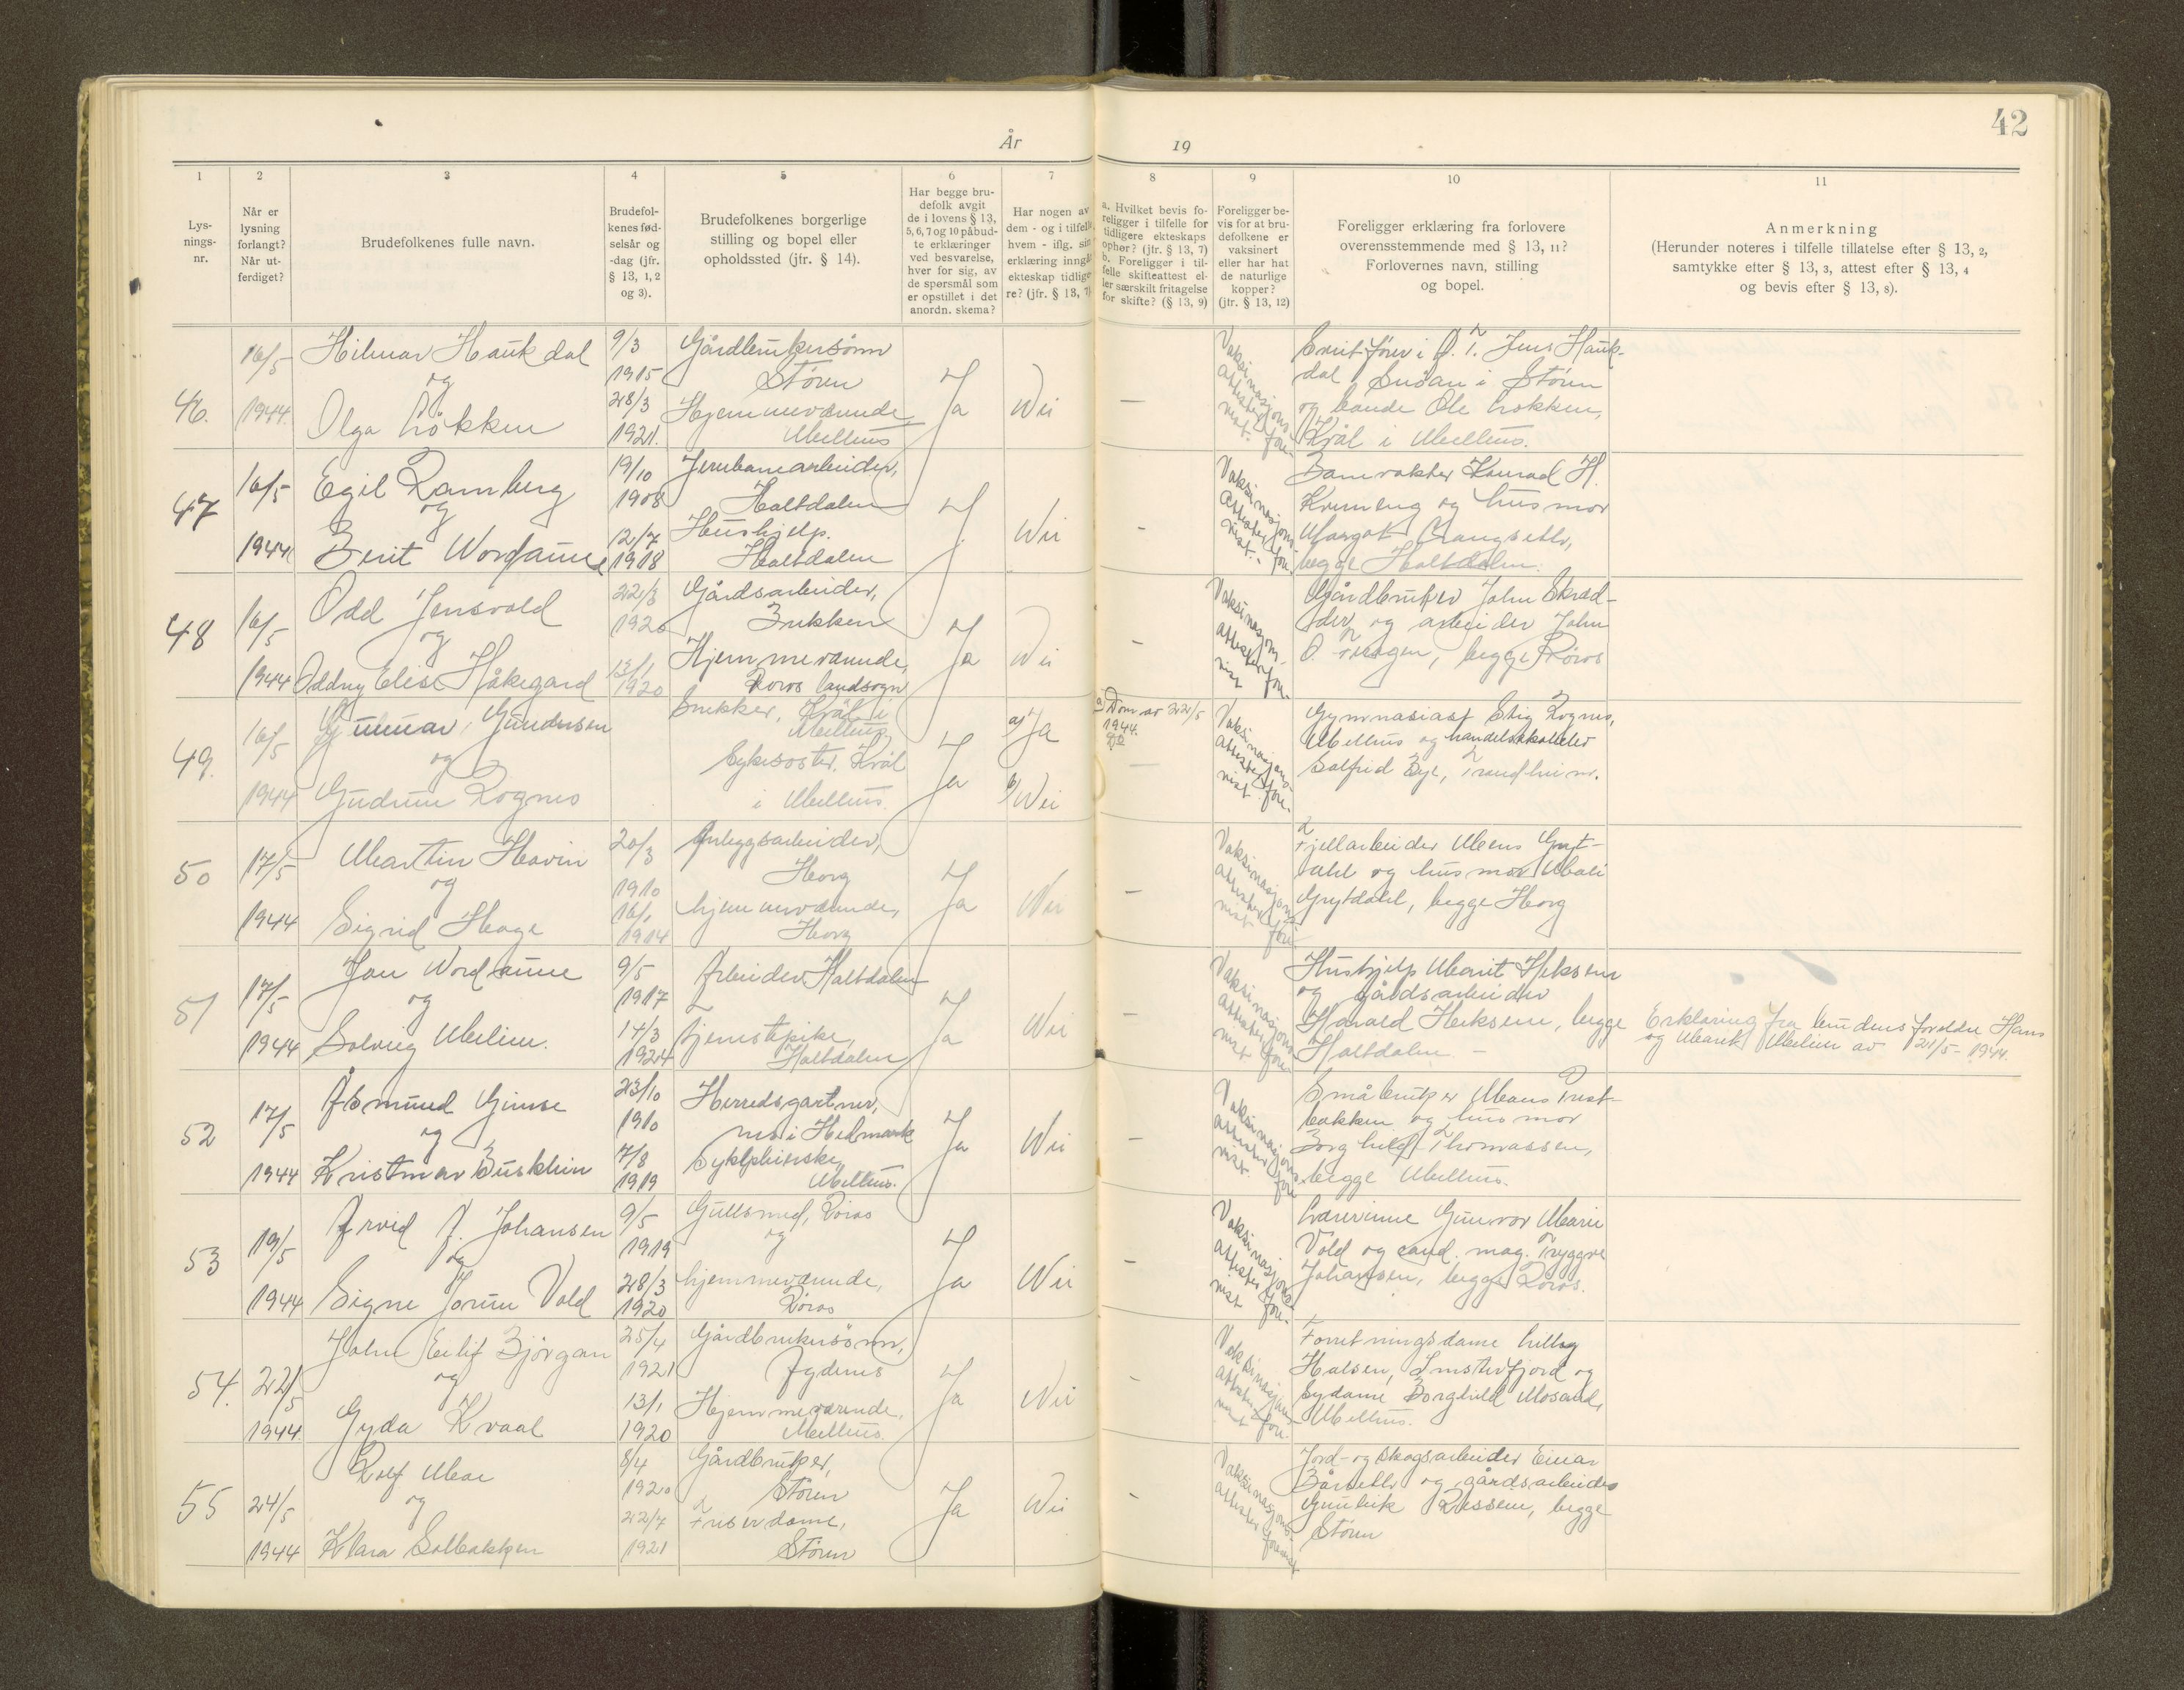 42
År 19
1 2 3 4 5 6 7 8 9 10 11
Lys-
nings-
nr.
Når er
lysning
forlangt?
Når ut-
ferdiget?
Brudefolkenes fulle navn.
Brudefol-
kenes fød-
selsår og
-dag (jfr.
§ 13, 1, 2
og 3).
Brudefolkenes borgerlige
stilling og bopel eller
opholdssted (jfr. § 14).
Har begge bru-
defolk avgit
de i lovens § 13,
5, 6, 7 og 10 påbud-
te erklæringer
ved besvarelse,
hver for sig, av
de spørsmål som
er opstillet i det
anordn. skema?
Har nogen av
dem - og i tilfelle
hvem - iflg. sin
erklæring inngått
ekteskap tidlige-
re? (jfr. § 13, 7)
a. Hvilket bevis fo-
religger i tilfelle for
tidligere ekteskaps
ophør? (jfr. § 13, 7)
b. Foreligger i til-
felle skifteattest el-
ler særskilt fritagelse
for skifte? (§ 13, 9)
Foreligger be-
vis for at bru-
defolkene er
vaksinert
eller har hat
de naturlige
kopper?
(jfr. § 13, 12)
Foreligger erklæring fra forlovere
overensstemmende med § 13, 11?
Forlovernes navn, stilling
og bopel.
Anmerkning
(Herunder noteres i tilfelle tillatelse efter § 13, 2,
samtykke efter § 13, 3, attest efter § 13, 4
og bevis efter § 13, 8).
46.
16/5
1944.
Hilmar Haukdal
og
Olga Løkken
9/3
1915
28/3
1921.
Gårdbrukersønn
Støren
Hjemmeværende
Melhus
Ja
Nei
—
Vaksinasjons-
attester fore-
vist.
i A. T. Jens Hauk-
dal, i Støren
og bonde Ole Løkken,
Kvål i Melhus.
47
16/5
1944
Egil Ramberg
og
Berit Nordaune
19/10
1908
12/7
1918
Jernbanearbeider,
Haltdalen
Hushjelp.
Haltdalen
Ja
Nei
-
Vaksinasjons-
attester fore-
vist.
Banevokter Konrad H.
og husmor
Margot
begge Haltdalen.
48
16/5
1944
Odd Jensvold
og
Oddny Elise Håkegard
22/3
1920
13/1
1920
Gårdsarbeider,
Brekken
Hjemmeværende,
Røros landsogn
Ja
Nei
-
Vaksinasjons-
attester fore-
vist
Gårdbruker John Skræd-
der og arbeider John
O. , begge Røros
49.
16/5
1944
Gunnar Gundersen
og
Gudrun Rognes
Snekker, Kvål i
Melhus
Sykesøster, Kvål
i Melhus.
Ja
a) Ja
b) Nei
a) Dom av 22/5
1944.
—
Vaksinasjons-
attester fore-
vist.
Gymnasiast Stig Rognes,
Melhus og handelsskoleelev
Solfrid Bye, Trondheim.
50
17/5
1944
Martin Hovin
og
Sigrid Hage
20/3
1910
16/1
1914
Anleggsarbeider,
Horg
hjemmeværende,
Horg
Ja
Nei
-
Vaksinasjons-
attester fore-
vist
Fjellarbeider Mens Gryt-
dahl og husmor Mali
Grytdahl, begge Horg
51
17/5
1944
Jon Nordaune
og
Solveig Melien.
9/5
1917
14/3
1924
Arbeider, Haltdalen
Tjenestpike,
Haltdalen
Ja
Nei
-
Vaksinasjons-
attester fore-
vist
Hushjelp Marit Heksem
og gårdsarbeider
Harald Heksem, begge
Haltdalen. -
Erklæring fra brudens foreldre Hans
og Marit Melien av 21/5 - 1944.
52
17/5
1944
Åsmund Gimse
og
Kristmar Buskhein
23/10
1910
7/8
1919
Herredsgartner,
Nes i Hedmark
Sykepleierske,
Melhus.
Ja
Nei
-
Vaksinasjons-
attester fore-
vist.
Småbruker Mons Prest-
bakken og husmor
Borghild Thomassen,
begge Melhus.
53
19/5
1944
Arvid A. Johansen
og
Signe Jorun Vold
9/5
1919
28/3
1920
Gullsmed, Røros
og
hjemmeværende,
Røros
Ja
Nei
-
Vaksinasjons-
attester fore-
vist
Lærerinne Gunvor Marie
Vold og cand. mag. Tryggve
Johansen, begge Røros.
54.
22/5
1944.
John Eilif Bjørgan
og
Gyda Kvaal
25/4
1921
13/1
1920
Gårdbrukersønn,
Agdenes
Hjemmeværende,
Melhus.
Ja
Nei
-
Vaksinasjons-
attester fore-
vist
Forretningsdame Selleg
Halsen, Imsterfjord og
Sydame Borghild Mosand,
Melhus.
55
24/5
1944
Rolf Moe
og
Klara Solbakken
8/4
1920
22/7
1921
Gårdbruker,
Støren
Friserdame,
Støren
Ja
Nei
-
Vaksinasjons-
attester forevist
Jord- og skogsarbeider Einar
og gårdsarbeider
Gunleik Ressem, begge
Støren